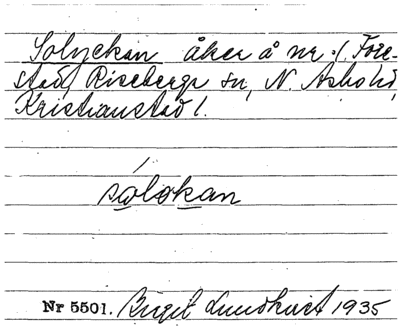 Solyckan åker å nr 1. Före-
stad, Riseberga sn, N. Åsbo hd,
Kristianstad l.
sólokan
Nr 5501. Birgit Lundkvist 1935